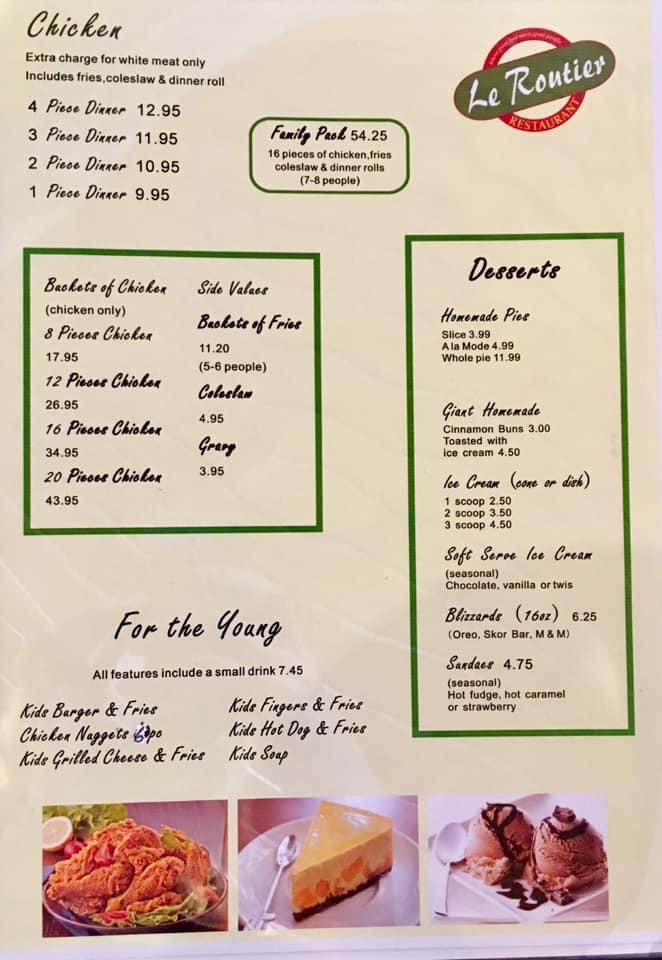 Chicken
Extra charge for white meat only
Includes fries,coleslaw & dinner roll
4 Piece Dinner 12.95
3 Piece Dinner 11.95
2 Piece Dinner 10.95
1 Piece Dinner 9.95
Le Routier
RESTAURANT
Family Pack 54.25
16 pieces of chicken,fries
coleslaw & dinner rolls
(7-8 people)
Buckets of Chicken
(chicken only)
8 Pieces Chicken
17.95
12 Pieces Chicken
26.95
16 Pieces Chicken
34.95
20 Pieces Chicken
43.95
Side Values
Buckets of Fries
11.20
(5-6 people)
Coleslaw
4.95
Gravy
3.95
Desserts
Homemade Pies
Slice 3.99
A la Mode 4.99
Whole pie 11.99
Giant Homemade
Cinnamon Buns 3.00
Toasted with
ice cream 4.50
Ice Cream (cone or dish)
1 scoop 2.50
2 scoop 3.50
3 scoop 4.50
Soft Serve Ice Cream
(seasonal)
Chocolate, vanilla or twis
Blizzards (16oz) 6.25
(Oreo, Skor Bar, M & M)
Sundaes 4.75
(seasonal)
Hot fudge, hot caramel
or strawberry
For the Young
All features include a small drink 7.45
Kids Burger & Fries
Chicken Nuggets
Kids Grilled Cheese & Fries
Kids Fingers & Fries
Kids Hot Dog & Fries
Kids Soup